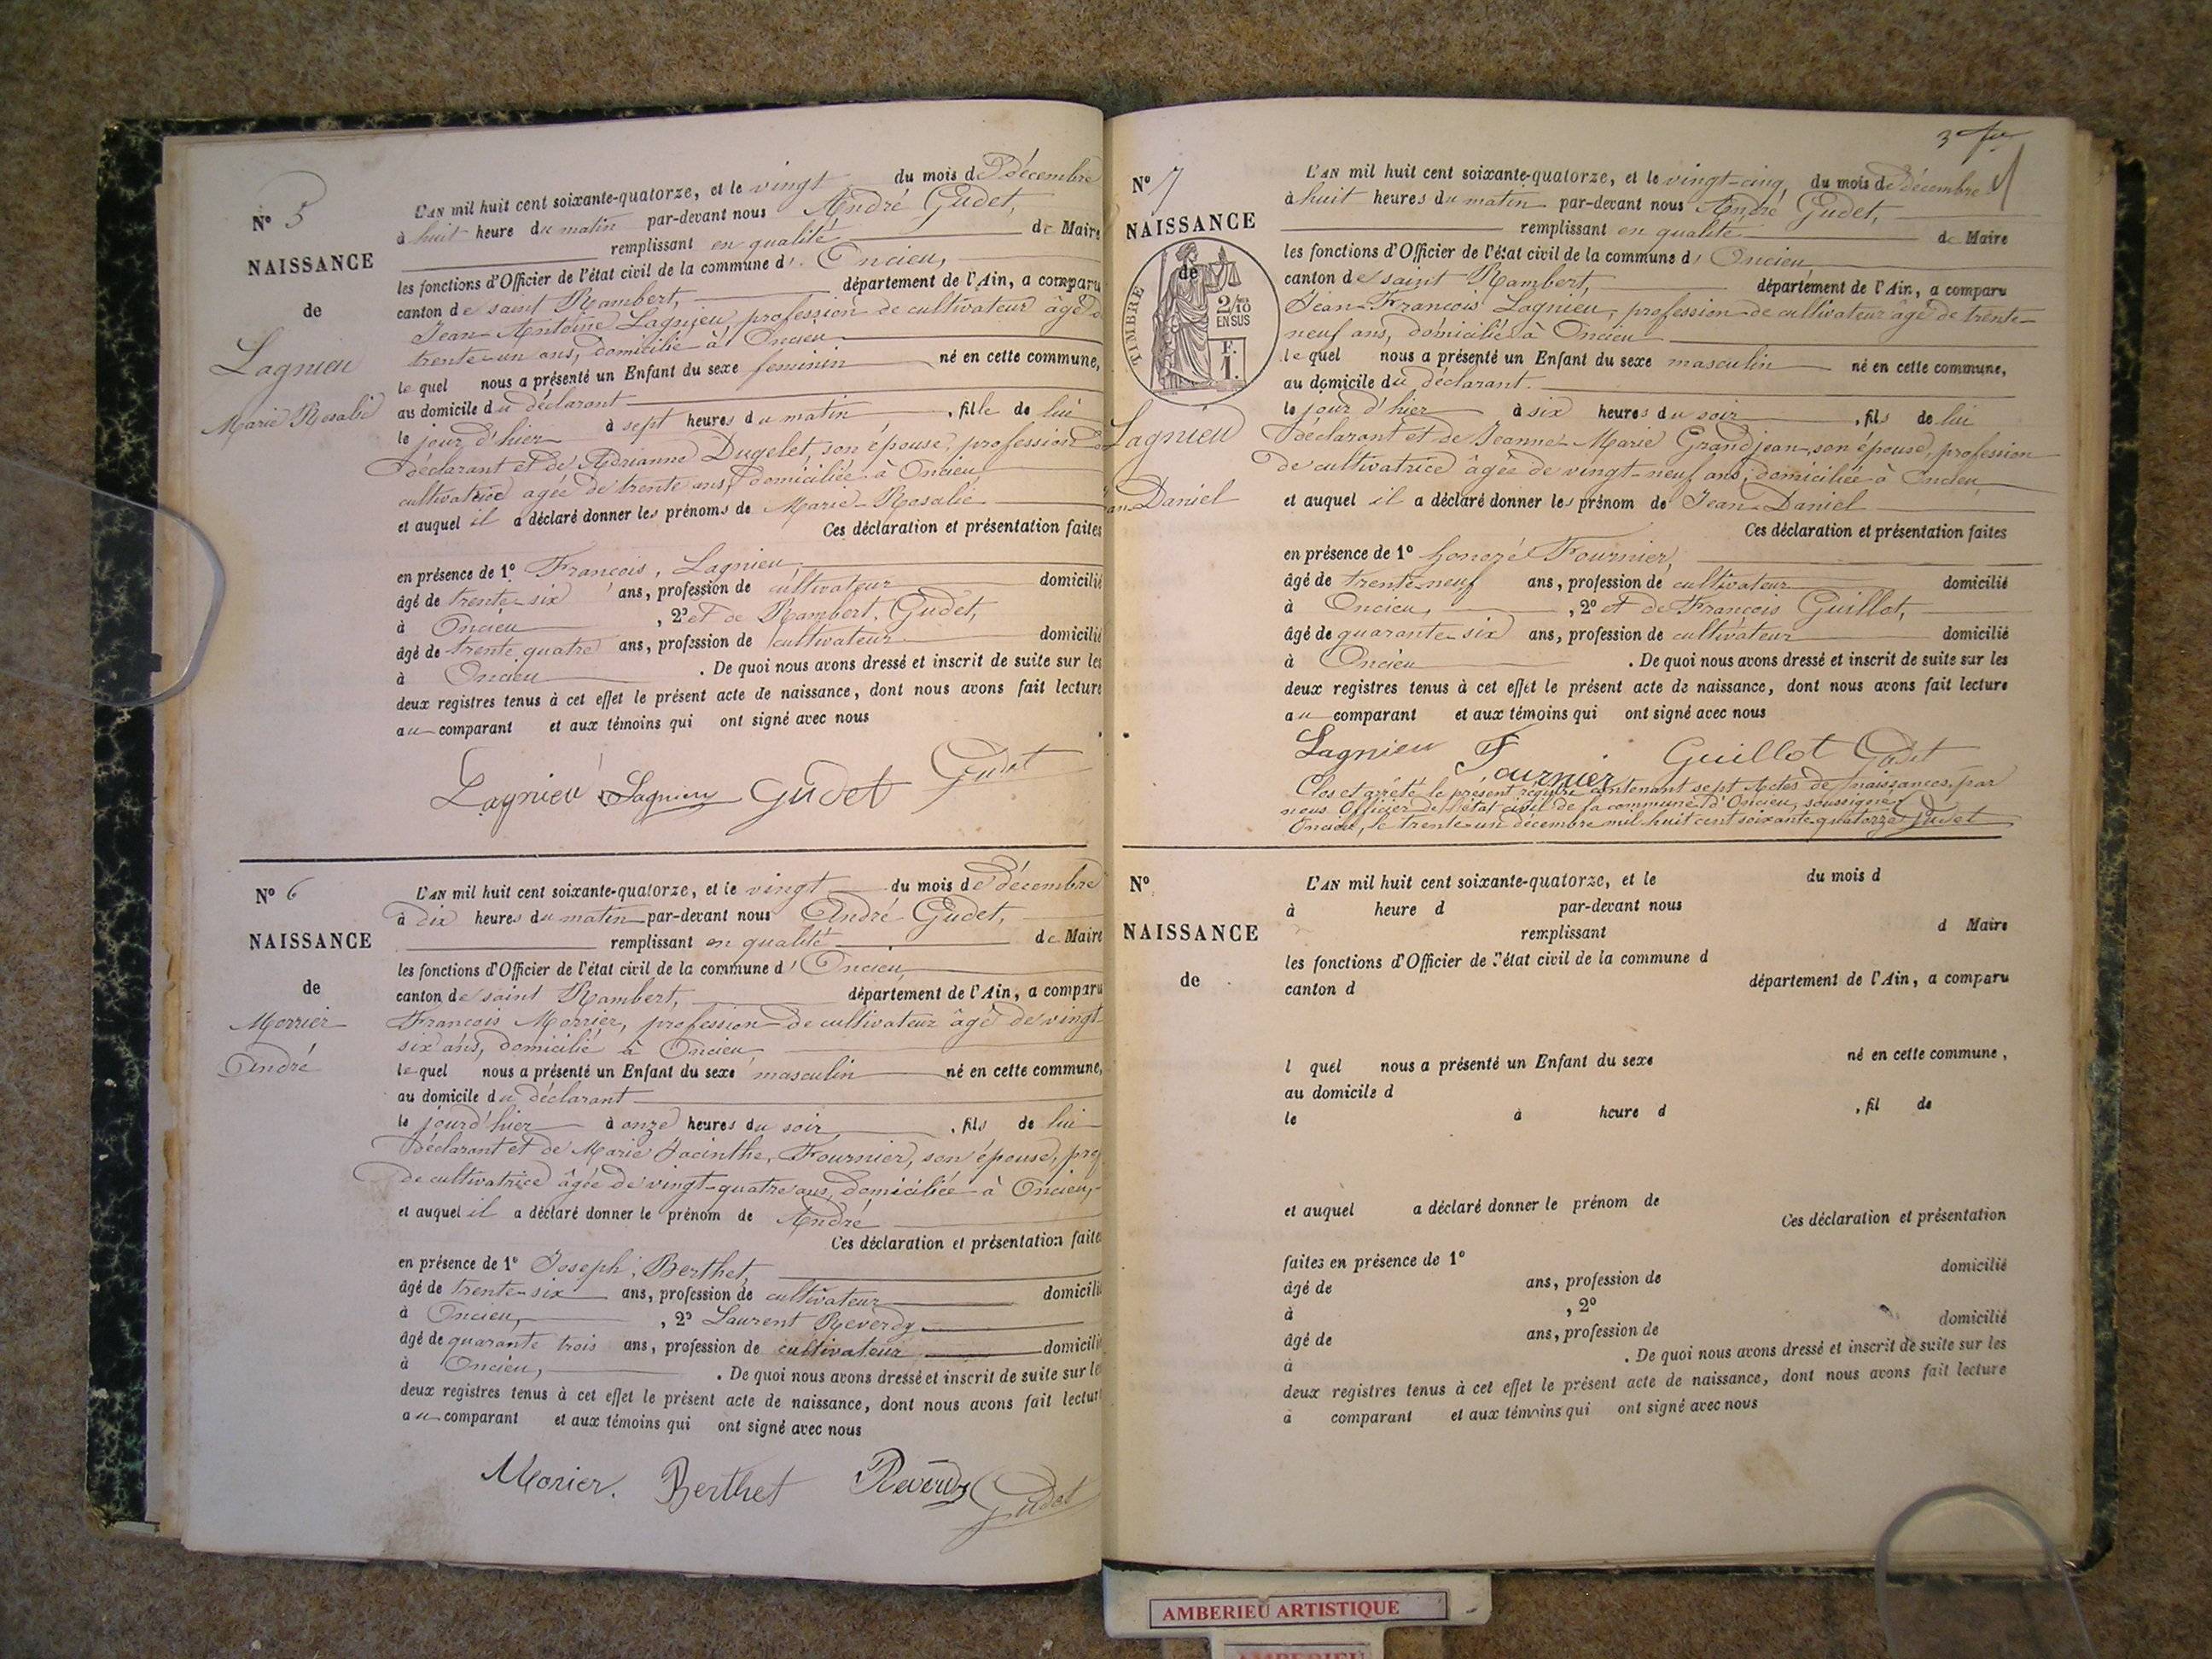 N° 5
NAISSANCE
de
Lagnieu
Marie Rosalie
L'AN mil huit cent soixante-quatorze, et le vingt du mois de Décembre
à huit heure du matin par-devant nous André Gudet,
remplissant en qualité de Maire
les fonctions d'Officier de l'état civil de la commune d' Oncieu,
canton de saint Rambert, département de l'Ain, a comparu
Jean-Antoine Lagnieu, profession de cultivateur âgé de
trente-un ans, domicilié à Oncieu
le quel nous a présenté un Enfant du sexe feminin né en cette commune,
au domicile du déclarant
le jour d'hier à sept heures du matin , fille de lui
déclarant et de Adrianne Dugelet, son épouse, profession de
cultivatrice agée de trente ans, domiciliée à Oncieu
et auquel il a déclaré donner les prénoms de Marie-Rosalie
Ces déclaration et présentation faites
en présence de 1° François, Lagnieu,
âgé de trente-six ans, profession de cultivateur domicilié
à Oncieu , 2° et de Rambert, Gudet,
âgé de trente quatre ans, profession de cultivateur domicilié
à Oncieu . De quoi nous avons dressé et inscrit de suite sur les
deux registres tenus à cet effet le présent acte de naissance, dont nous avons fait lecture
au comparant et aux témoins qui ont signé avec nous
Lagnieu Lagnieu Gudet Gudet
N° 6
NAISSANCE
de
Morrier
André
L'AN mil huit cent soixante-quatorze, et le vingt du mois de décembre
à dix heures du matin par-devant nous André Gudet,
remplissant en qualité de Maire
les fonctions d'Officier de l'état civil de la commune d' Oncieu,
canton de saint Rambert, département de l'Ain, a comparu
François Morrier, profession de cultivateur âgé de vingt
six ans, domicilié à Oncieu
le quel nous a présenté un Enfant du sexe masculin né en cette commune,
au domicile du déclarant
le jour d'hier à onze heures du soir , fils de lui
déclarant et de Marie Jacinthe, Fournier, son épouse, prof
de cultivatrice âgée de vingt-quatre ans, domiciliée à Oncieu,
et auquel il a déclaré donner le prénom de André
Ces déclaration et présentation faites
en présence de 1° Joseph, Berthet,
âgé de trente-six ans, profession de cultivateur domicilié
à Oncieu, , 2° Laurent Reverdy
âgé de quarante trois ans, profession de cultivateur domicilié
à Oncieu, . De quoi nous avons dressé et inscrit de suite sur les
deux registres tenus à cet effet le présent acte de naissance, dont nous avons fait lecture
au comparant et aux témoins qui ont signé avec nous
Morier. Berthet Reverdy Gudet
3
N° 7
NAISSANCE
de
TIMBRE
2/10
EN SUS
F.
1.
Lagnieu
Daniel
L'AN mil huit cent soixante-quatorze, et le vingt-cinq, du mois de décembre
à huit heures du matin par-devant nous André Gudet,
remplissant en qualité de Maire
les fonctions d'Officier de l'état civil de la commune d' Oncieu
canton de saint Rambert, département de l'Ain, a comparu
Jean-François Lagnieu, profession de cultivateur agé de trente-
neuf ans, domicilié à Oncieu
le quel nous a présenté un Enfant du sexe masculin né en cette commune,
au domicile du déclarant.
le jour d'hier à six heures du soir , fils de lui
déclarant et de Jeanne-Marie Grandjean, son épouse, profession
de cultivatrice âgée de vingt-neuf ans, domiciliée à Oncieu
et auquel il a déclaré donner les prénom de Jean-Daniel
Ces déclaration et présentation faites
en présence de 1° honoré Fournier,
âgé de trente-neuf ans, profession de cultivateur domicilié
à Oncieu, , 2° et de François Guillot,
âgé de quarante-six ans, profession de cultivateur domicilié
à Oncieu . De quoi nous avons dressé et inscrit de suite sur les
deux registres tenus à cet effet le présent acte de naissance, dont nous avons fait lecture
au comparant et aux témoins qui ont signé avec nous
Lagnieu Fournier Guillot Gudet
Clos et arrêté le présent régistre contenant sept Actes de naissances, par
nous Officier de l'état civil de la commune d'Oncieu, soussigné
Oncieu, le trente-un décembre mil huit cent soixante-quatorze Gudet
N°
NAISSANCE
de
L'AN mil huit cent soixante-quatorze, et le du mois d
à heure d par-devant nous
remplissant d Maire
les fonctions d'Officier de l'état civil de la commune d
canton d département de l'Ain, a comparu
l quel nous a présenté un Enfant du sexe né en cette commune,
au domicile d
le à heure d , fil de
et auquel a déclaré donner le prénom de
Ces déclaration et présentation
faites en présence de 1°
âgé de ans, profession de domicilié
à , 2°
âgé de ans, profession de domicilié
à . De quoi nous avons dressé et inscrit de suite sur les
deux registres tenus à cet effet le présent acte de naissance, dont nous avons fait lecture
a comparant et aux témoins qui ont signé avec nous
AMBERIEU ARTISTIQUE
AMBERIEU